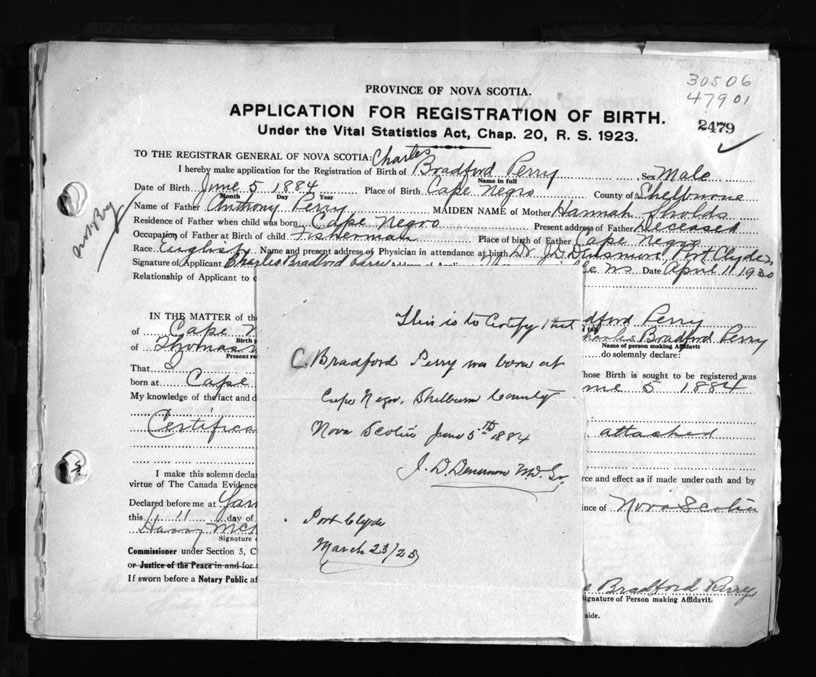 30506
47901
PROVINCE OF NOVA SCOTIA.
APPLICATION FOR REGISTRATION OF BIRTH.
2479
Under the Vital Statistics Act, Chap. 20, R. S. 1923.
TO THE REGISTRAR GENERAL OF NOVA SCOTIA: Charles
I hereby make application for the Registration of Birth of Bradford Perry Sex Male
Name in full
Date of Birth June 5 1884 Place of Birth Cape Negro County of Shelburne
Month Day Year
Name of Father Anthony Perry MAIDEN NAME of Mother Hannah
Residence of Father when child was born Cape Negro Present address of Father Deceased
Occupation of Father at Birth of child Fisherman Place of birth of Father Cape Negro
Race English Name and present address of Physician in attendance at birth Dr. J D Port Clyde
Signature of Applicant Charles Bradford Perry N.S. Date April 11 1930
Relationship of Applicant to
IN THE MATTER of the
of Cape N
Birth
of Thomas
Present
That
born at Cape
My knowledge of the fact and
Certifica
I make this solemn decla
virtue of The Canada Evidence
Declared before me at Yar
this 11 day of
Harry
Signature
Commissioner under Section 5, C
or Justice of the Peace in and for
If sworn before a Notary Public af
This is to Certify that
C. Bradford Perry was born at
Cape Negro, Shelburn County
Nova Scotia June 5th 1884
J. D. M.D.
Port Clyde
March 23/25
dford Perry
Charles Bradford Perry
Name of person making Affidavit
do solemnly declare:
hose Birth is sought to be registered was
ne 5 1884
attached
rce and effect as if made under oath and by
ince of Nova Scotia
Bradford Perry
Signature of Person making Affidavit.
side.